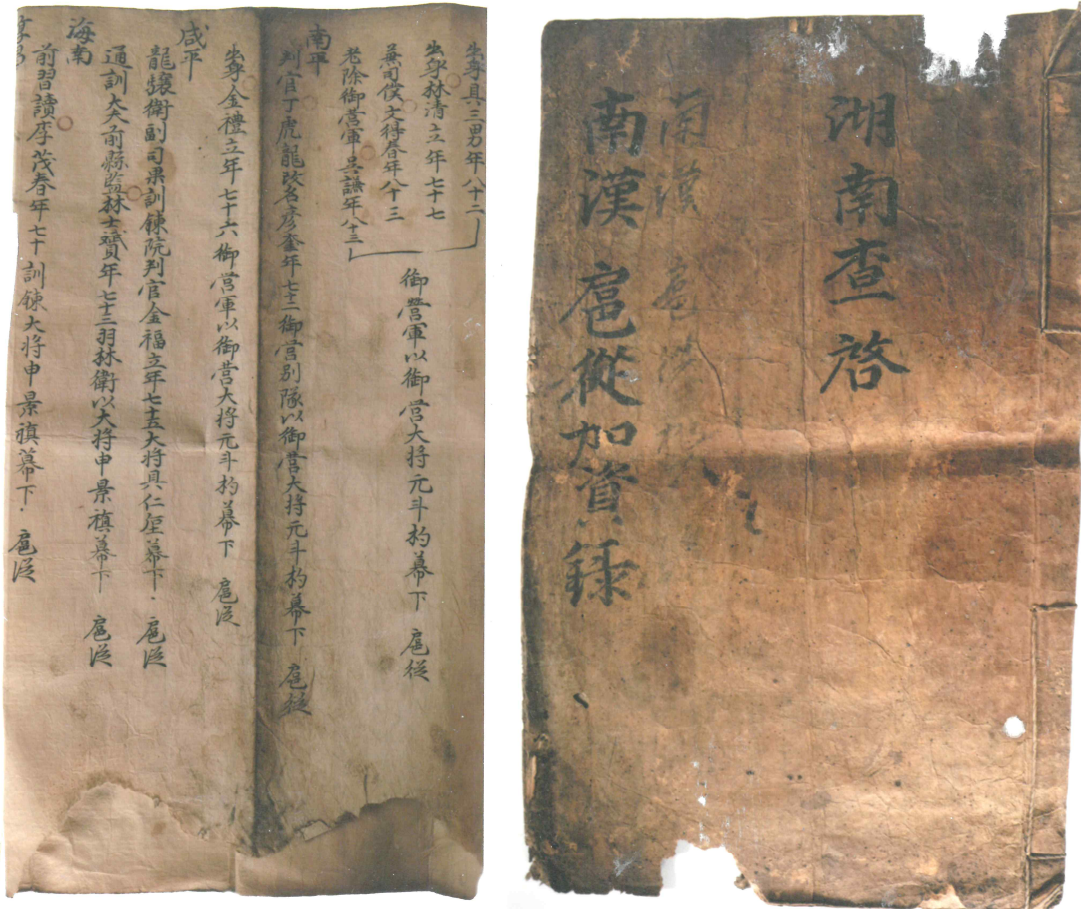 湖南查啓
南漢扈從加資錄
出身具三男年八十二
出身林清立年七十七
兼司僕文待春年八十三
老除御營軍吳讜年八十三
御營軍以御營大將元斗杓幕下 扈從
南平
判官丁虎龍改名彦奎年七十二御營別隊以御營大將元斗杓幕下 扈從
出身金禮立年七十六御營軍以御營大將元斗杓幕下 扈從
咸平
龍驤衛副司果訓鍊院判官金福立年七十五大將具仁垕幕下 扈從
通訓大夫前縣監林士贇年七十二羽林衛以大將申景禛幕下 扈從
海南
前習讀李茂春年七十訓鍊大將申景禛幕下 扈從